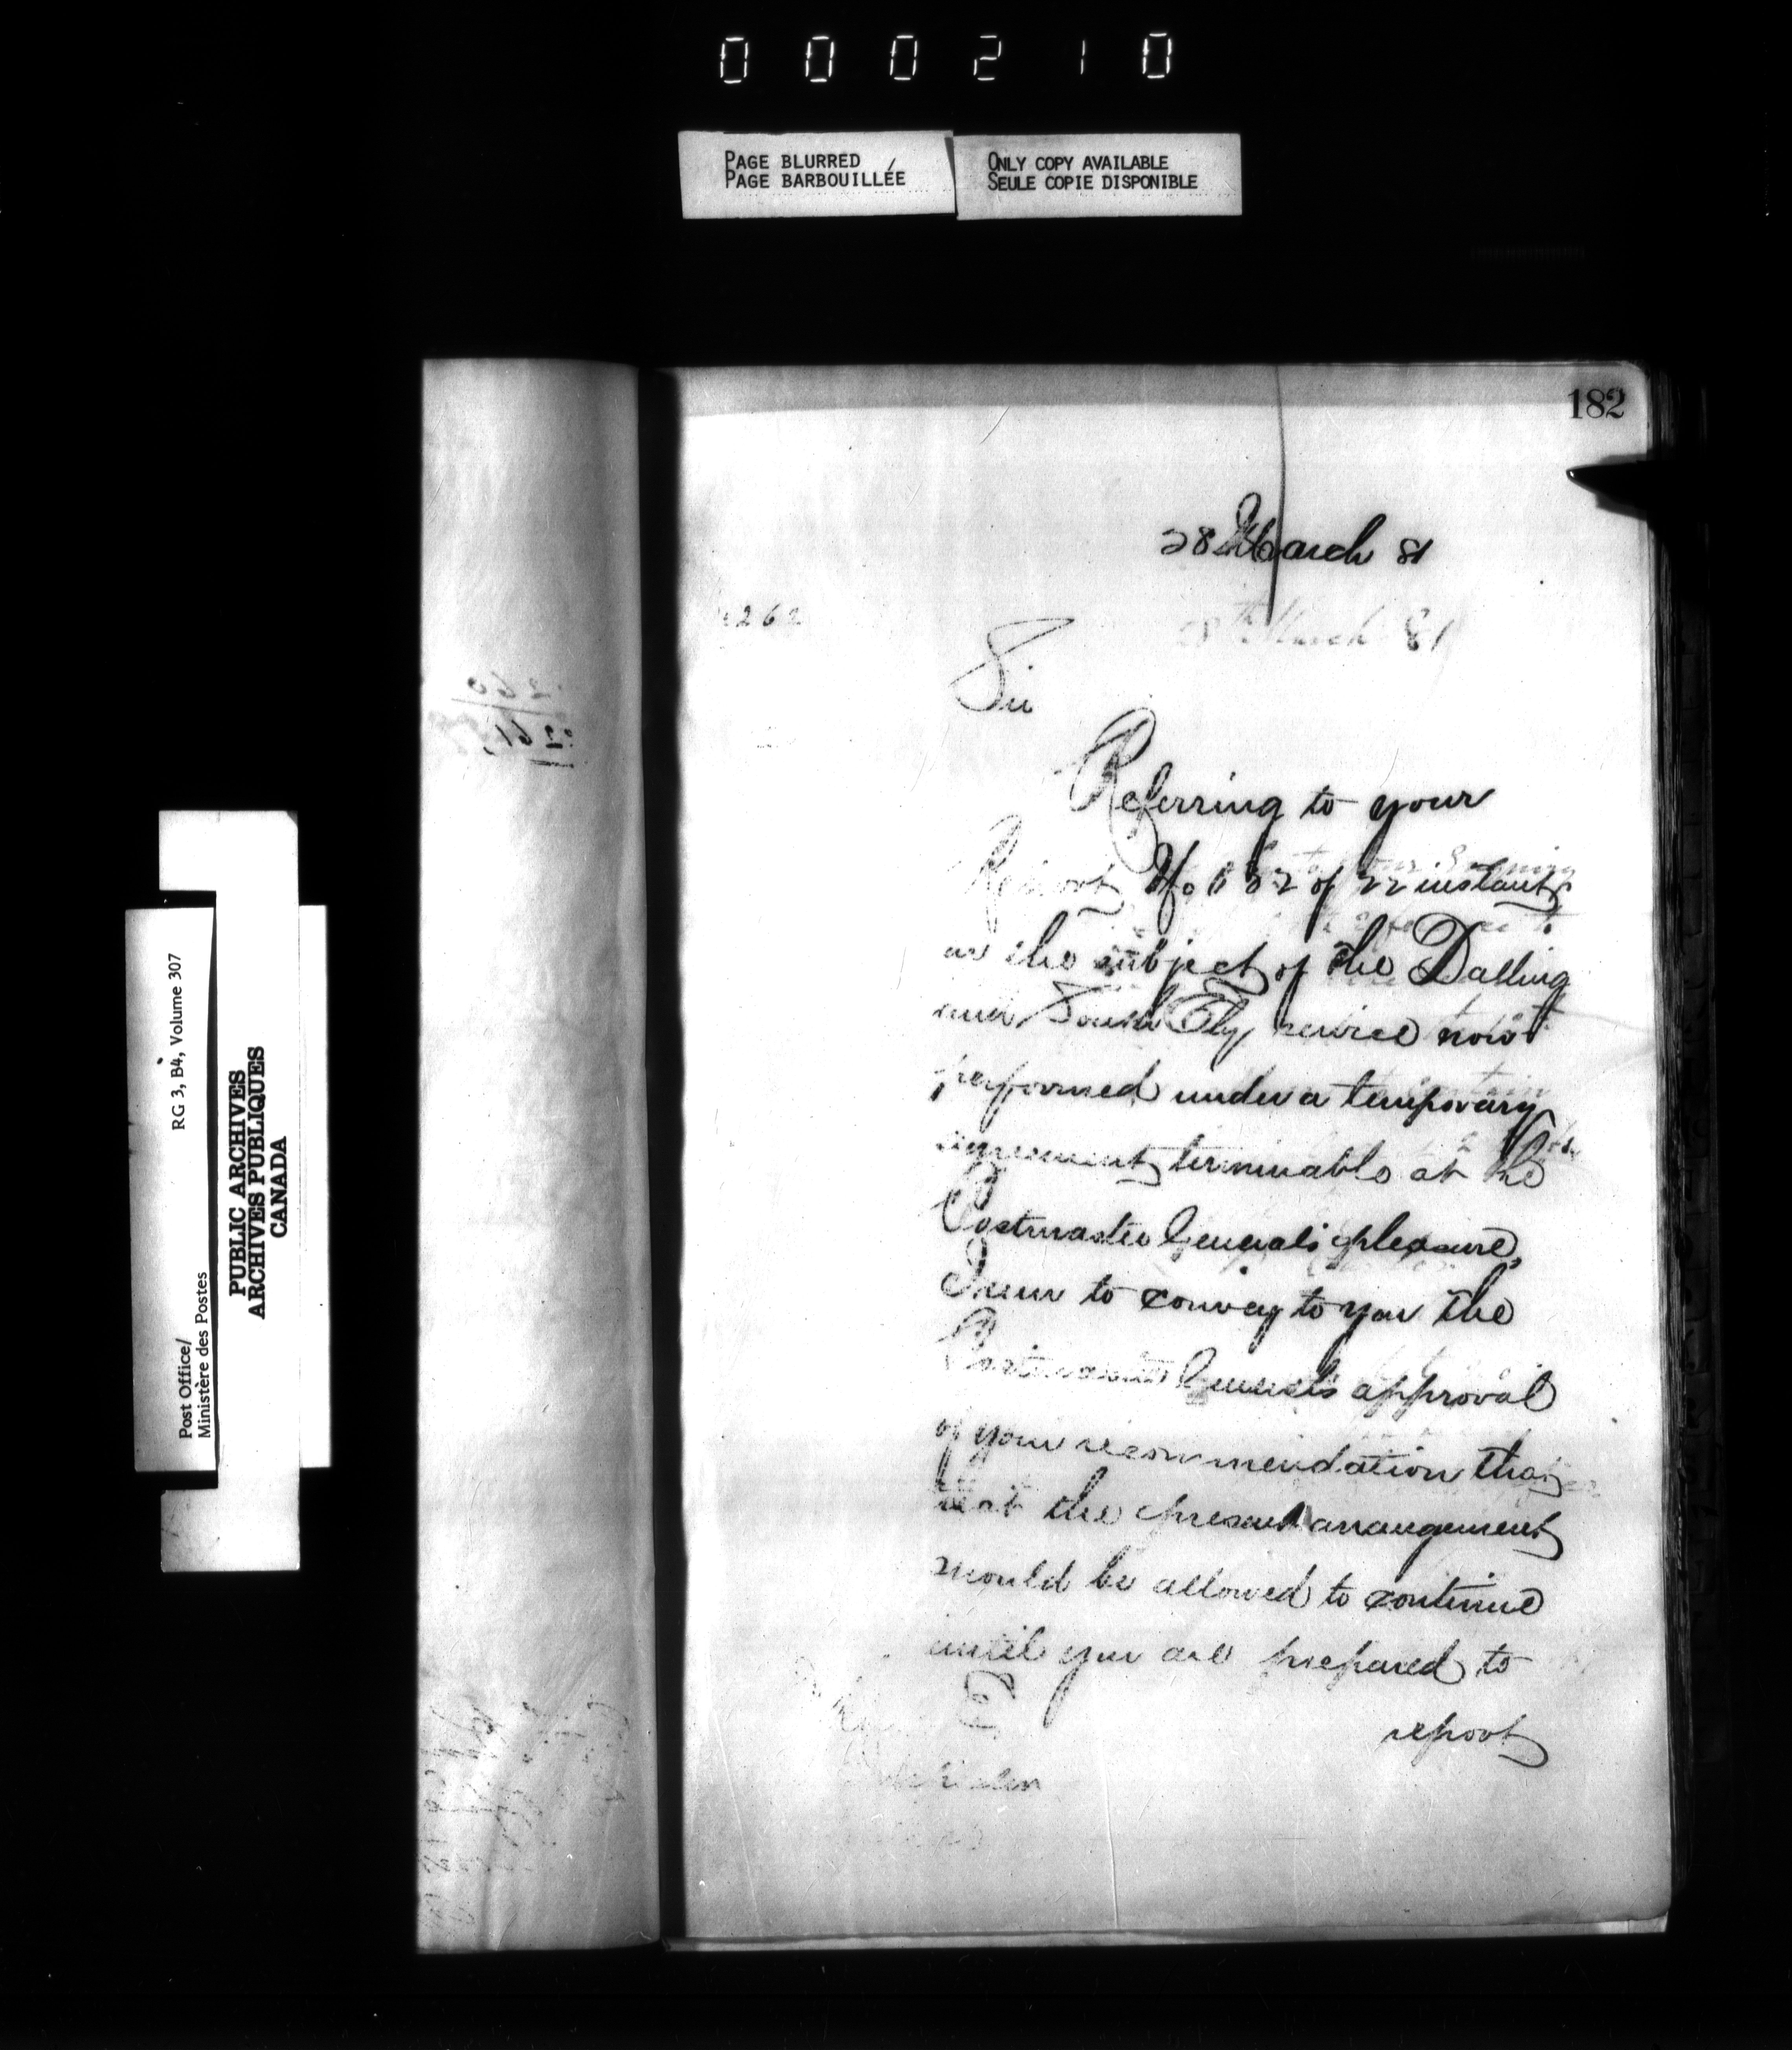 000210
PAGE BLURRED
PAGE BARBOUILLÉE
ONLY COPY AVAILABLE
SEULE COPIE DISPONIBLE
182
28 March 81
28th March 81
262
Sir
Referring to your
Report No 132 of 22 instant
on the subject of the Dalling
and South Ely service now
performed under a temporary
agreement terminable at the
Postmaster General's pleasure,
I am to convey to you the
Postmaster General's approval
of your recommendation that
that the present arrangement
should be allowed to continue
until you are prepared to
report
260
261
Post Office/
Ministère des Postes
RG 3, B4, Volume 307
PUBLIC ARCHIVES
ARCHIVES PUBLIQUES
CANADA